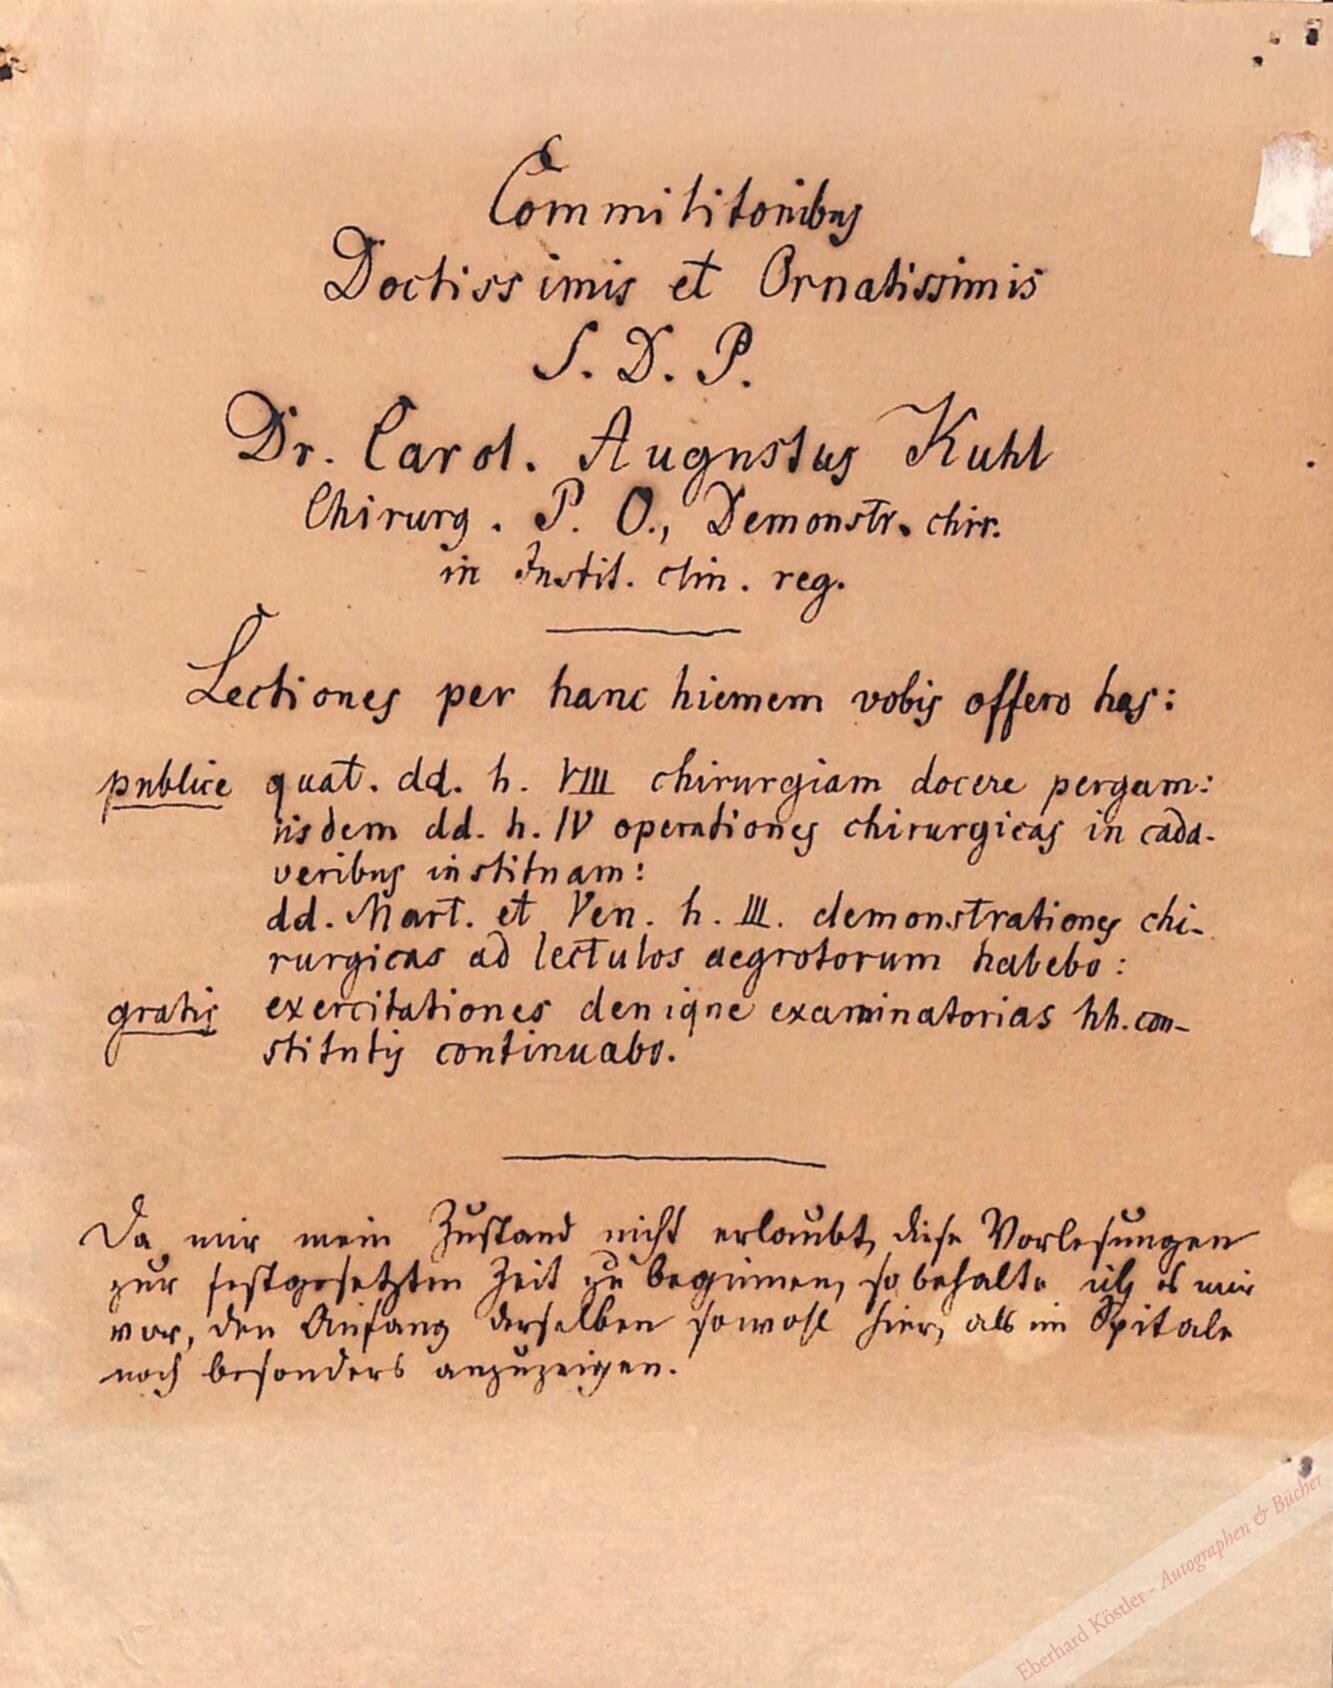 Commilitonibus
Doctissimis et Ornatissimis
S. D. P.
Dr. Carol. Augustus Kuhl
Chirurg. P. O., Demonstr. chir.
in Instit. clin. reg.
Lectiones per hanc hiemem vobis offero has:
publice quat. dd. h. VIII chirurgiam docere pergam:
iisdem dd. h. IV operationes chirurgicas in cada-
veribus instituam:
dd. Mart. et Ven. h. III. demonstrationes chi-
rurgicas ad lectulos aegrotorum habebo:
gratis exercitationes denique examinatorias hh. con-
stitutis continuabo.
Da mir mein Zustand nicht erlaubt, diese Vorlesungen
zur festgesetzten Zeit zu beginnen, so behalte ich es mir
vor, den Anfang derselben sowohl hier, als im Spitale
noch besonders anzuzeigen.
Eberhard Köstler - Autographen & Bücher